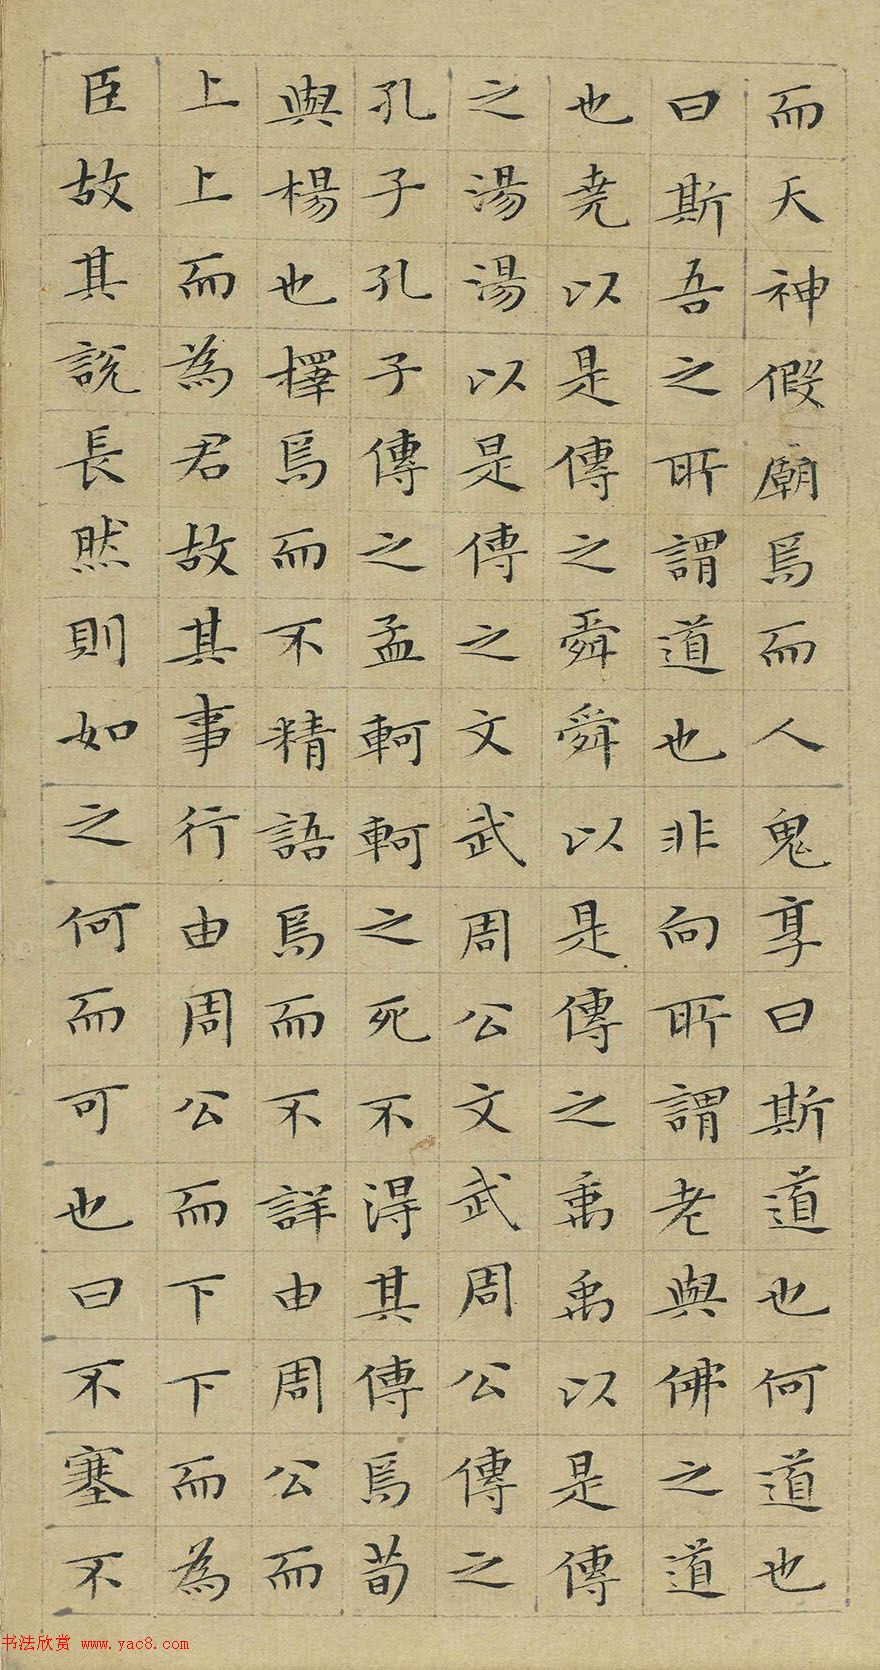 而天神假廟焉而人鬼享曰斯道也何道也
曰斯吾之所謂道也非向所謂老與佛之道
也堯以是傳之舜舜以是傳之禹禹以是傳
之湯湯以是傳之文武周公文武周公傳之
孔子孔子傳之孟軻軻之死不得其傳焉荀
與楊也擇焉而不精語焉而不詳由周公而
上上而為君故其事行由周公而下下而為
臣故其說長然則如之何而可也曰不塞不
书法欣赏 www.yac8.com